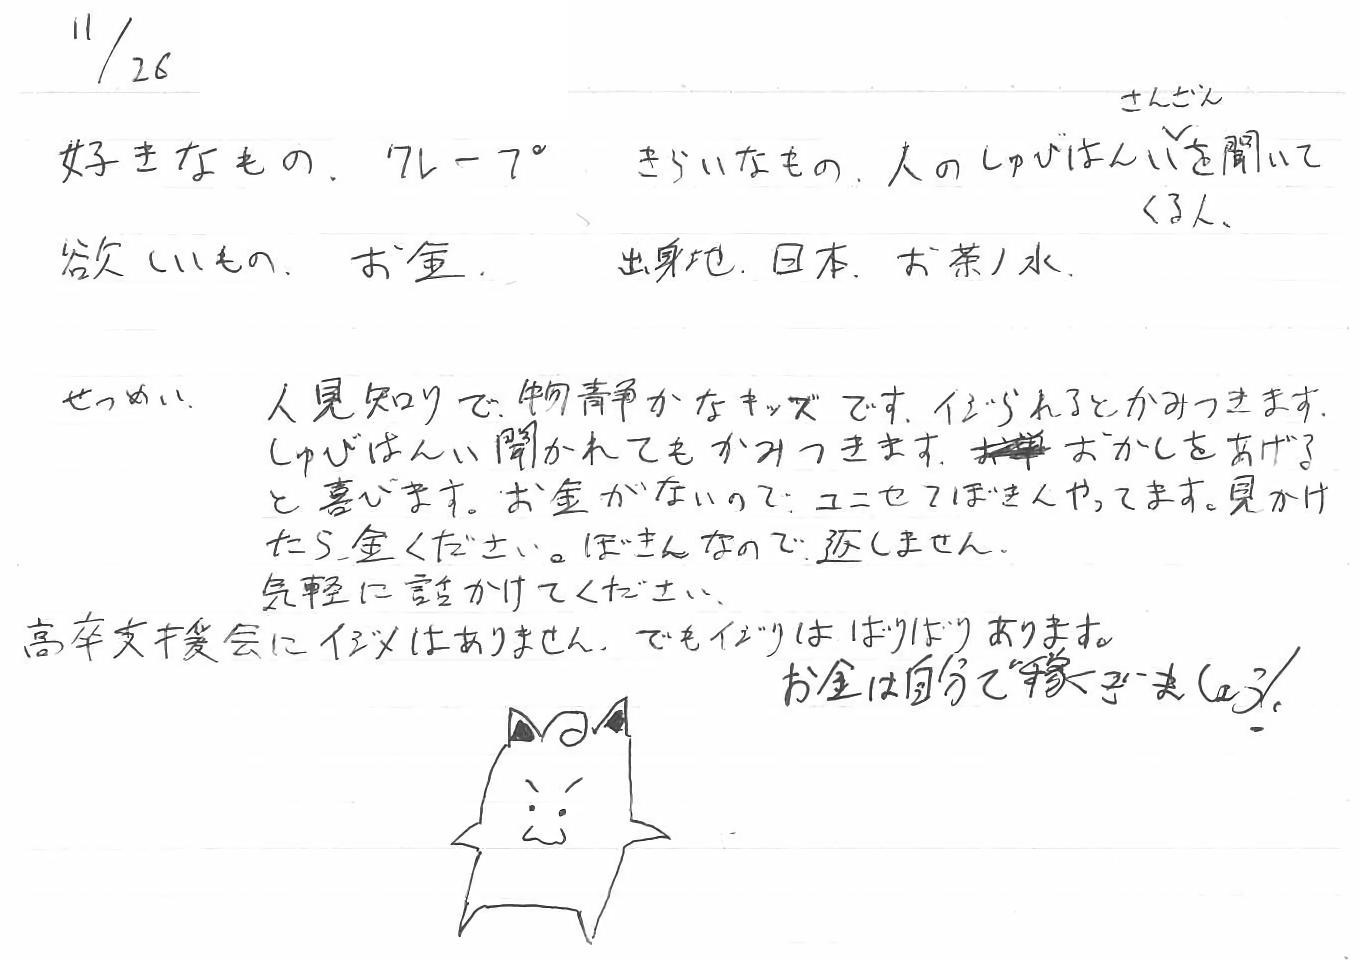 11/26
好きなもの、クレープ きらいなもの、人のしゅびはんいさんざんを聞いて
くる人、
欲しいもの、お金、 出身地、日本、お茶ノ水、
せつめい、人見知りで、物静かなキッズです、イジられるとかみつきます、
しゅびはんい聞かれてもかみつきます、おかしをあげる
と喜びます。お金がないので、ユニセでぼきんやってます。見かけ
たら、金ください。ぼきんなので、返しません、
気軽に話かけてください、
高卒支援会にイジメはありません、でもイジりはばりばりあります。
お金は自分で稼ぎましょう!